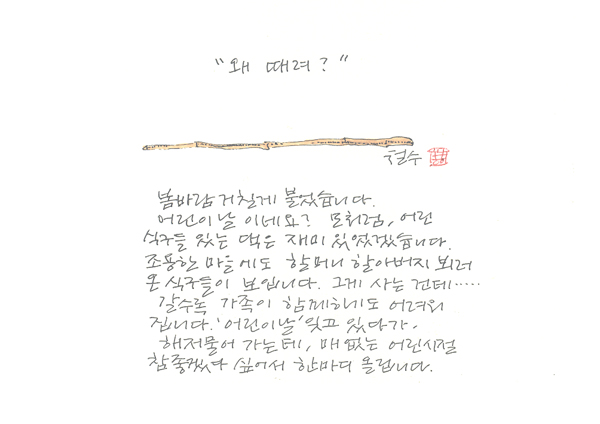 "왜 때려?"
철수
봄바람 거칠게 불었습니다.
어린이날 이네요? 모처럼, 어린
식구들 있는 댁은 재미 있었겠습니다.
조용한 마을에도 할머니 할아버지 뵈러
온 식구들이 보입니다. 그게 사는 건데‥‥‥
갈수록 가족이 함께하기도 어려워
집니다. '어린이날' 잊고 있다가.
해저물어 가는데, 매 없는 어린시절
참 좋겠다 싶어서 한마디 올립니다.